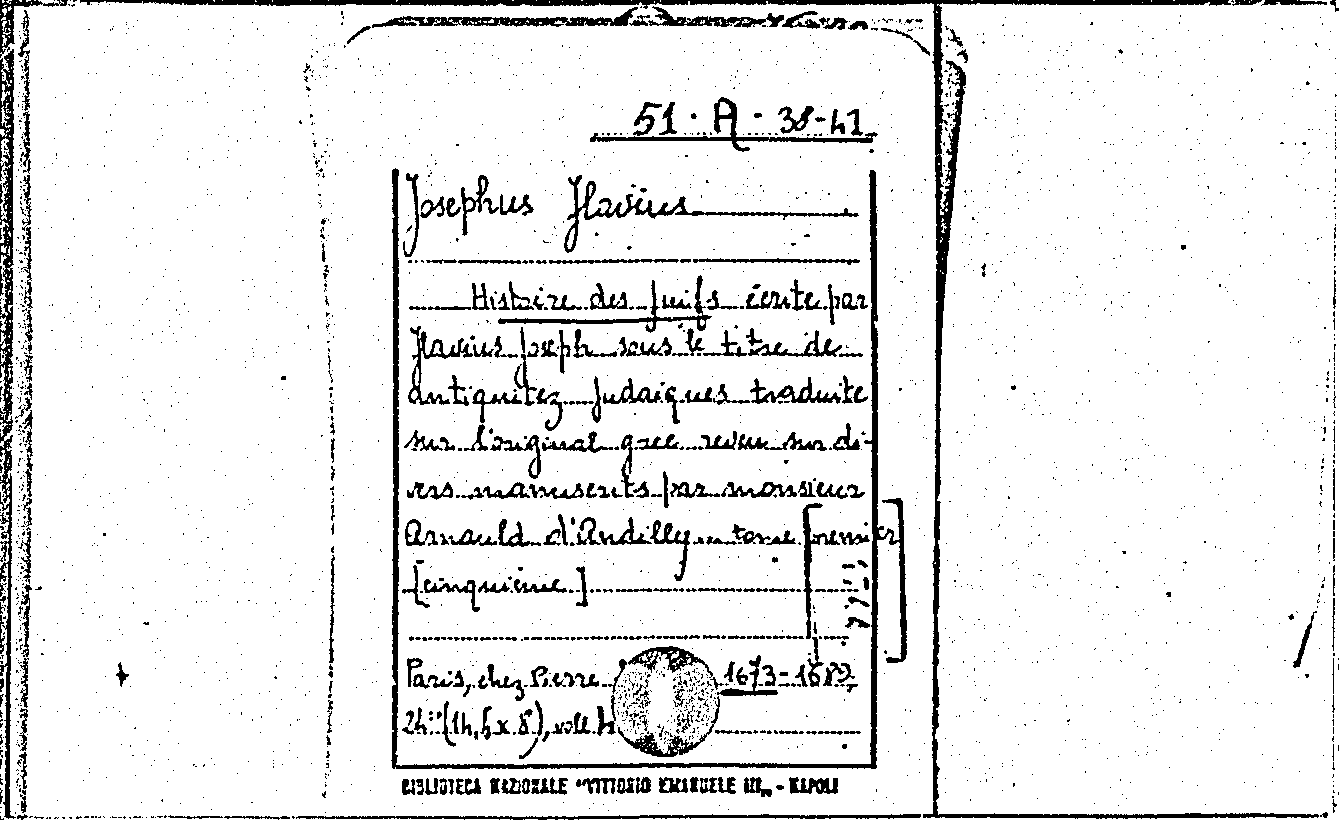 51 · A · 38-41
Josephus Flavius
Histoire des Juifs écrite par
Flavius Joseph sous le titre de
antiquitez Judaiques traduite
sur l'original grec reveu sur di-
vers manuscrits par monsieur
Arnauld d'Andilly... tome [premier]
[cinquième]
Paris, chez Pierre 1673-1683
24
BIBLIOTECA NAZIONALE "VITTORIO EMANUELE III" - NAPOLI